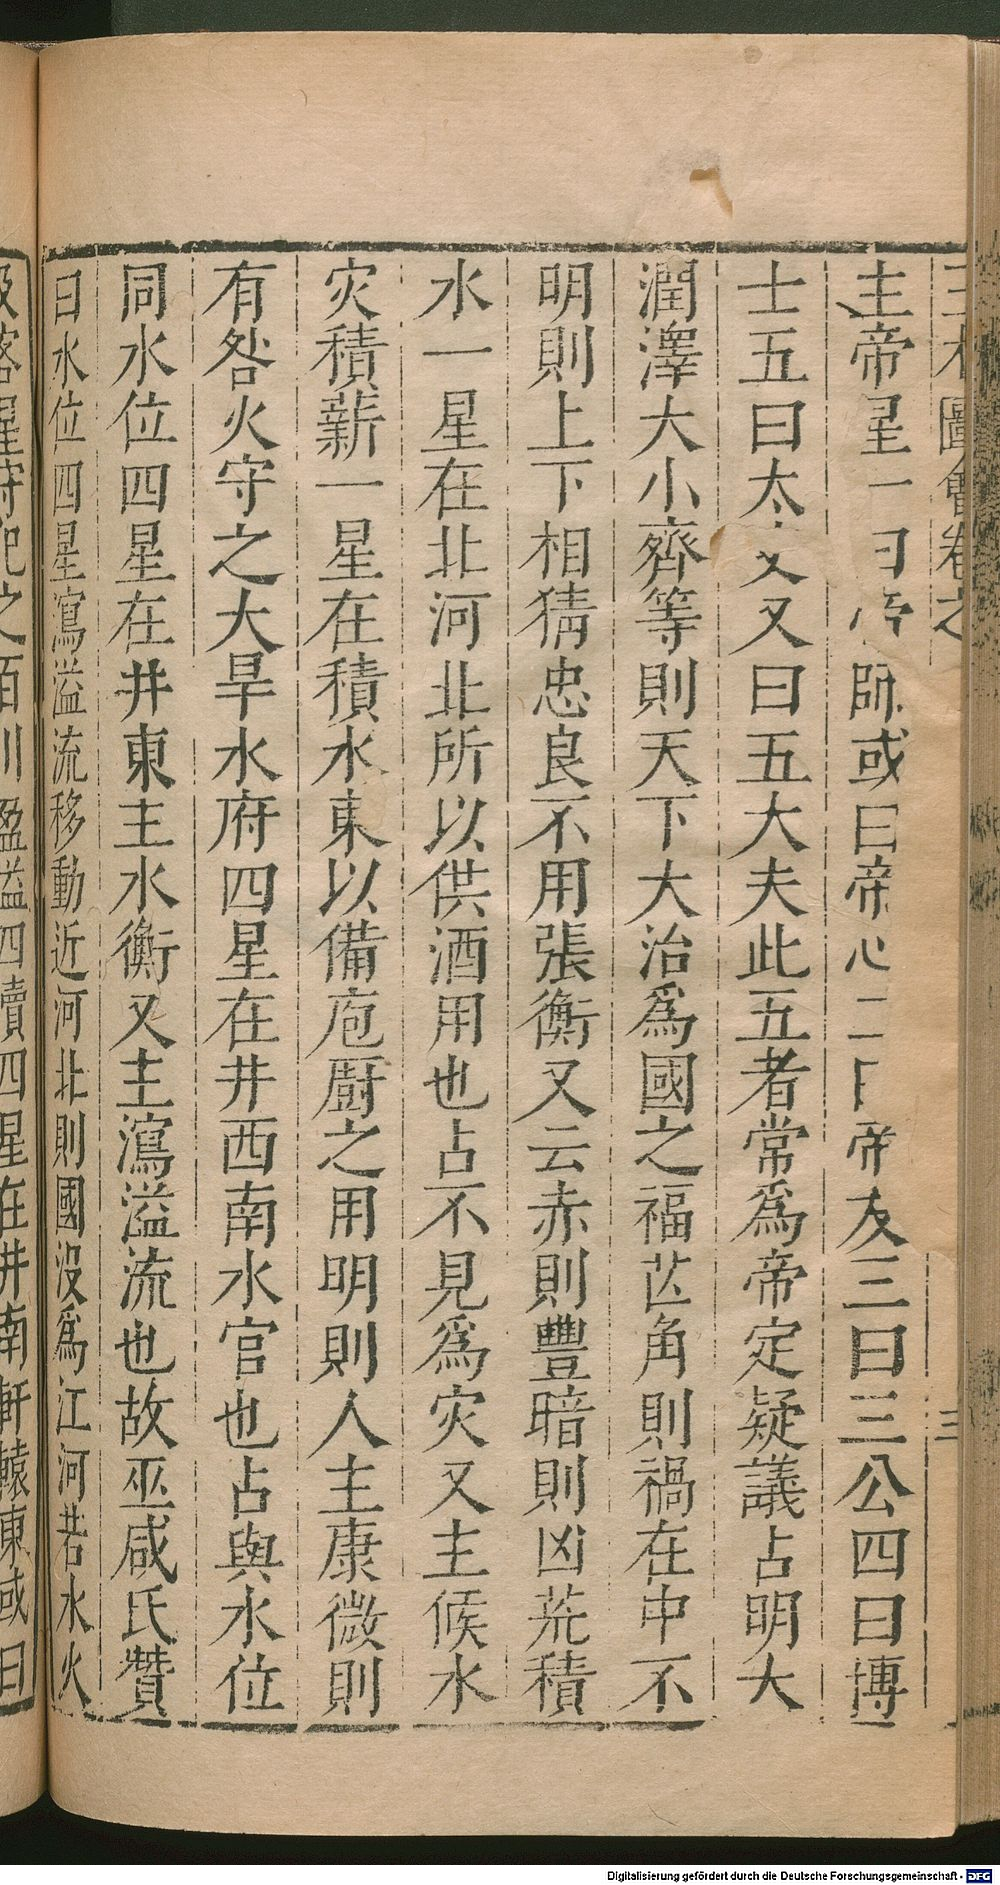 圖會卷之 三
主帝星一曰帝師或曰帝心二曰帝友三曰三公四曰博
士五曰太又又曰五大夫此五者常爲帝定疑議占明大
潤澤大小齊等則天下大治爲國之福芒角則禍在中不
明則上下相猜忠良不用張衡又云赤則豐暗則凶荒積
水一星在北河北所以供酒用也占不見爲灾又主候水
灾積薪一星在積水東以備庖厨之用明則人主康微則
有咎火守之大旱水府四星在井西南水官也占與水位
同水位四星在井東主水衡又主瀉溢流也故巫咸氏贊
曰水位四星瀉溢流移動近河北則國没爲江河若水火
客星守犯之百川盈溢四瀆四星在井南軒轅東或曰
Digitalisierung gefördert durch die Deutsche Forschungsgemeinschaft - DFG